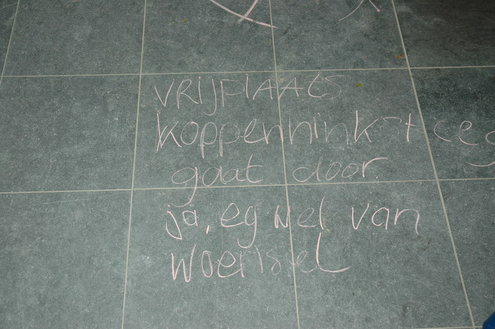 VRIJPLAATS
koppenhinksteeg
gaat door
ja, eg wel van
woerisel